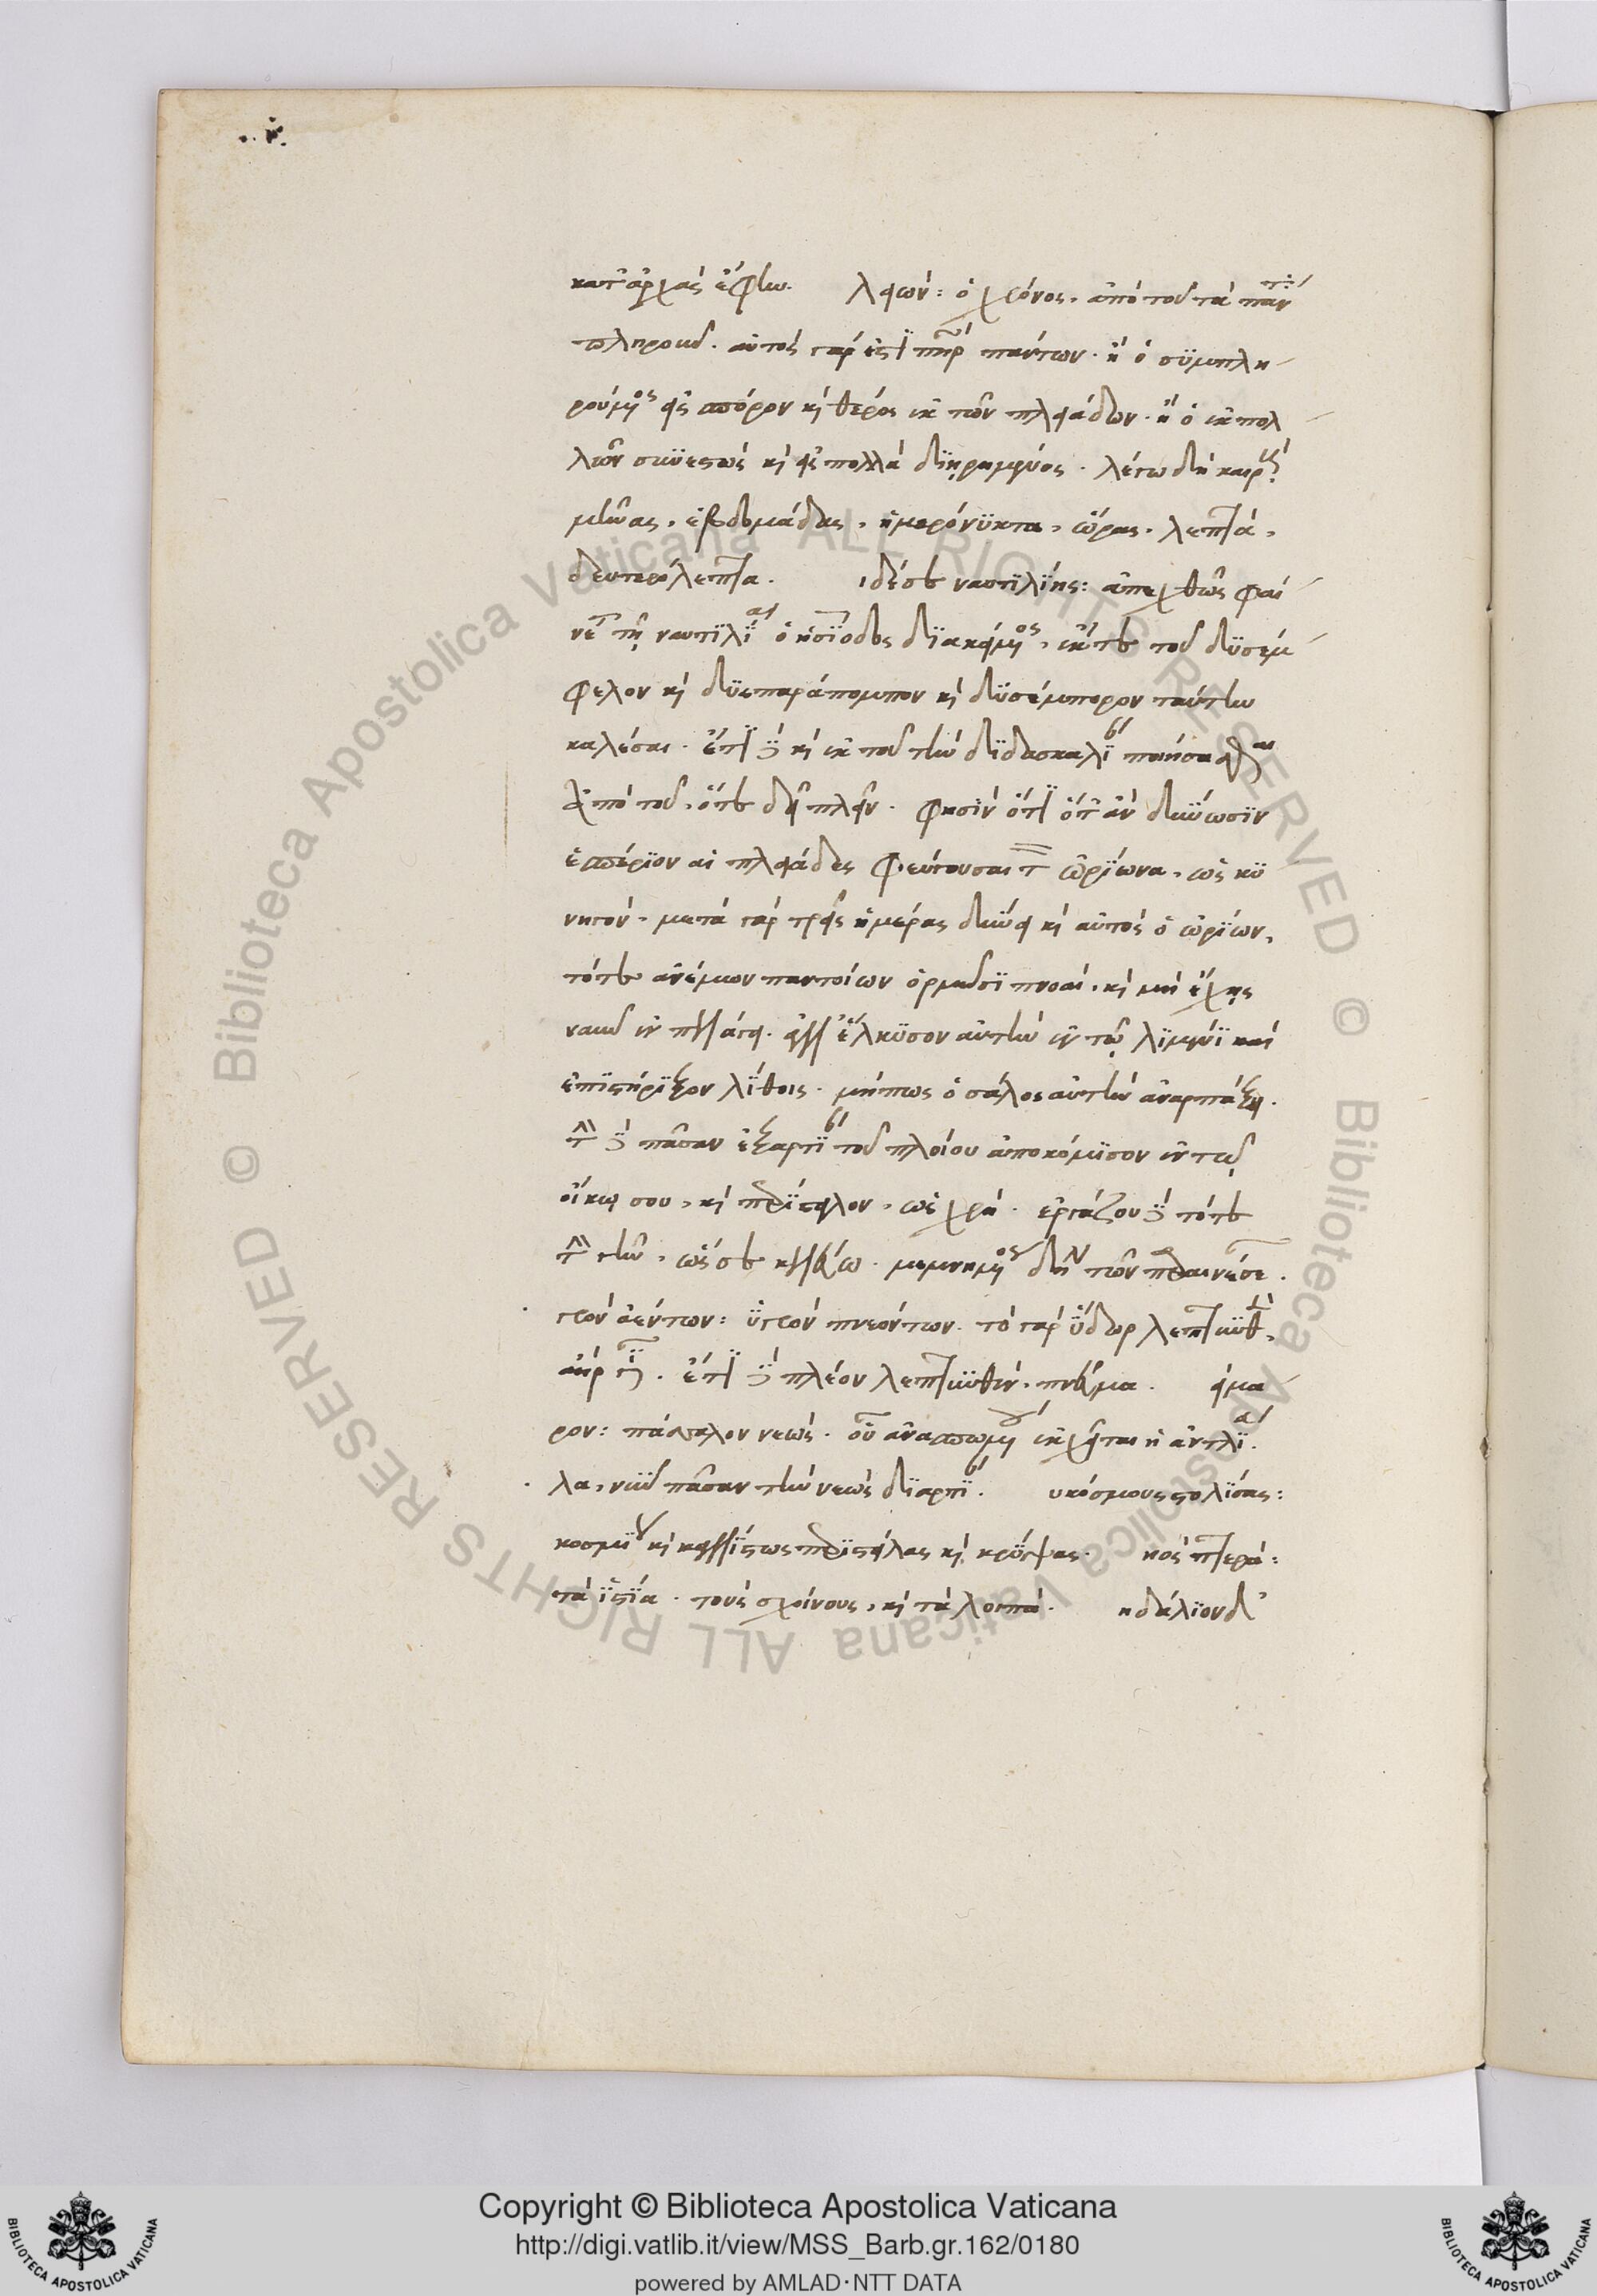 κατ' ἀρχὰς ἔφην. λειών: ὁ χρόνος. ἀπὸ τοῦ τὰ πάντα
πληροῦν. αὐτὸς γάρ ἐστι πατὴρ πάντων. ἢ ὁ συμπλη
ρούμενος εἰς σπόρον καὶ θέρος ἐκ τῶν πλειάδων. ἢ ὁ ἐκ πολ
λῶν συνεστὼς καὶ εἰς πολλὰ διῃρημένος. λέγω δὴ καιροὺς
μῆνας, ἑβδομάδας, ἡμερόνυκτα, ὥρας, λεπτά,
δευτερόλεπτα. ιδέσε ναυτιλίης: ἀπεχθῶς φαί
νεται τῇ ναυτιλίᾳ ὁ ἡσίοδος διακείμενος, ἔκ τε τοῦ δυσπέμ
φελον καὶ δυσπαράπομπον καὶ δυσέμπορον ταύτην
καλέσαι. ἔτι δὲ καὶ ἐκ τοῦ τὴν διδασκαλίαν ποιήσασθαι
ἀπὸ τοῦ, ὅτε δεῖ πλεῖν. φησὶν ὅτι ὅτ' ἂν δύνωσιν
ἑσπέριον αἱ πλειάδες φεύγουσαι τὸν ὠρίωνα, ὡς κυ
νηγόν. μετὰ γὰρ τρεῖς ἡμέρας δύνει καὶ αὐτὸς ὁ ὠρίων,
τότε ἀνέμων παντοίων ὁρμῶσι πνοαί. καὶ μὴ ἔχῃς
ναῦν ἐν πελάγει. ἀλλ' ἕλκυσον αὐτὴν ἐν τῷ λιμένι καὶ
ἐπιστήριξον λίθοις. μήπως ὁ σάλος αὐτὴν ἀναρπάξῃ.
τὴν δὲ πᾶσαν ἐξαρτίαν τοῦ πλοίου ἀποκόμισον ἐν τῷ
οἴκῳ σου, καὶ περίστειλον, ὡς χρή. ἐργάζου δὲ τότε
τὴν γῆν, ὥς σε κελεύω. μεμνημένος δὴ τῶν παραινέσε
γρὸν ἀέντων: ὑγρὸν πνεόντων. τὸ γὰρ ὕδωρ λεπτυνθὲν,
ἀὴρ γίνεται. ἔτι δὲ πλέον λεπτυνθέν, πνεῦμα. είμα
ρον: πάσσαλον νεώς. οὗ ἀνασπωμένου ἐκχεῖται ἡ ἀντλία.
λα, νῦν πᾶσαν τὴν νεὼς διαρτίαν. υκόσμους στολίσας:
κοσμίως καὶ καλλίστως περιστείλας καὶ κρύψας. ηὸς πτερά:
τὰ ἱστία. τοὺς σχοίνους, καὶ τὰ λοιπά. ηδάλιον δ'
Copyright © Biblioteca Apostolica Vaticana
http://digi.vatlib.it/view/MSS_Barb.gr.162/0180
powered by AMLAD·NTT DATA